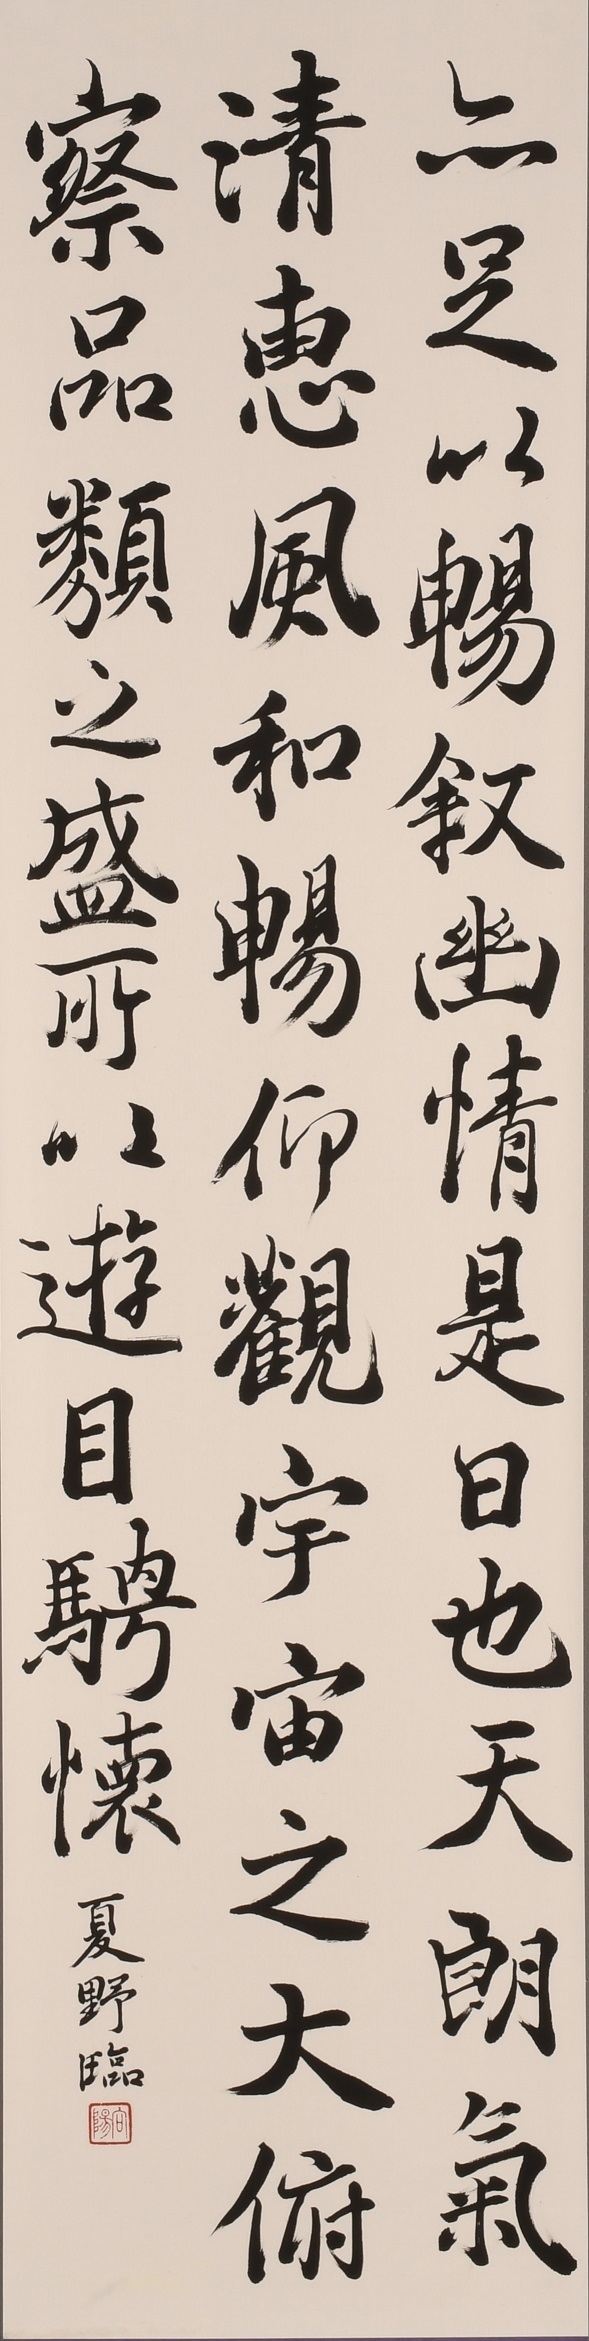 亦足以暢叙幽情是日也天朗氣
清惠風和暢仰觀宇宙之大俯
察品類之盛所以遊目騁懷
夏野臨
向陽